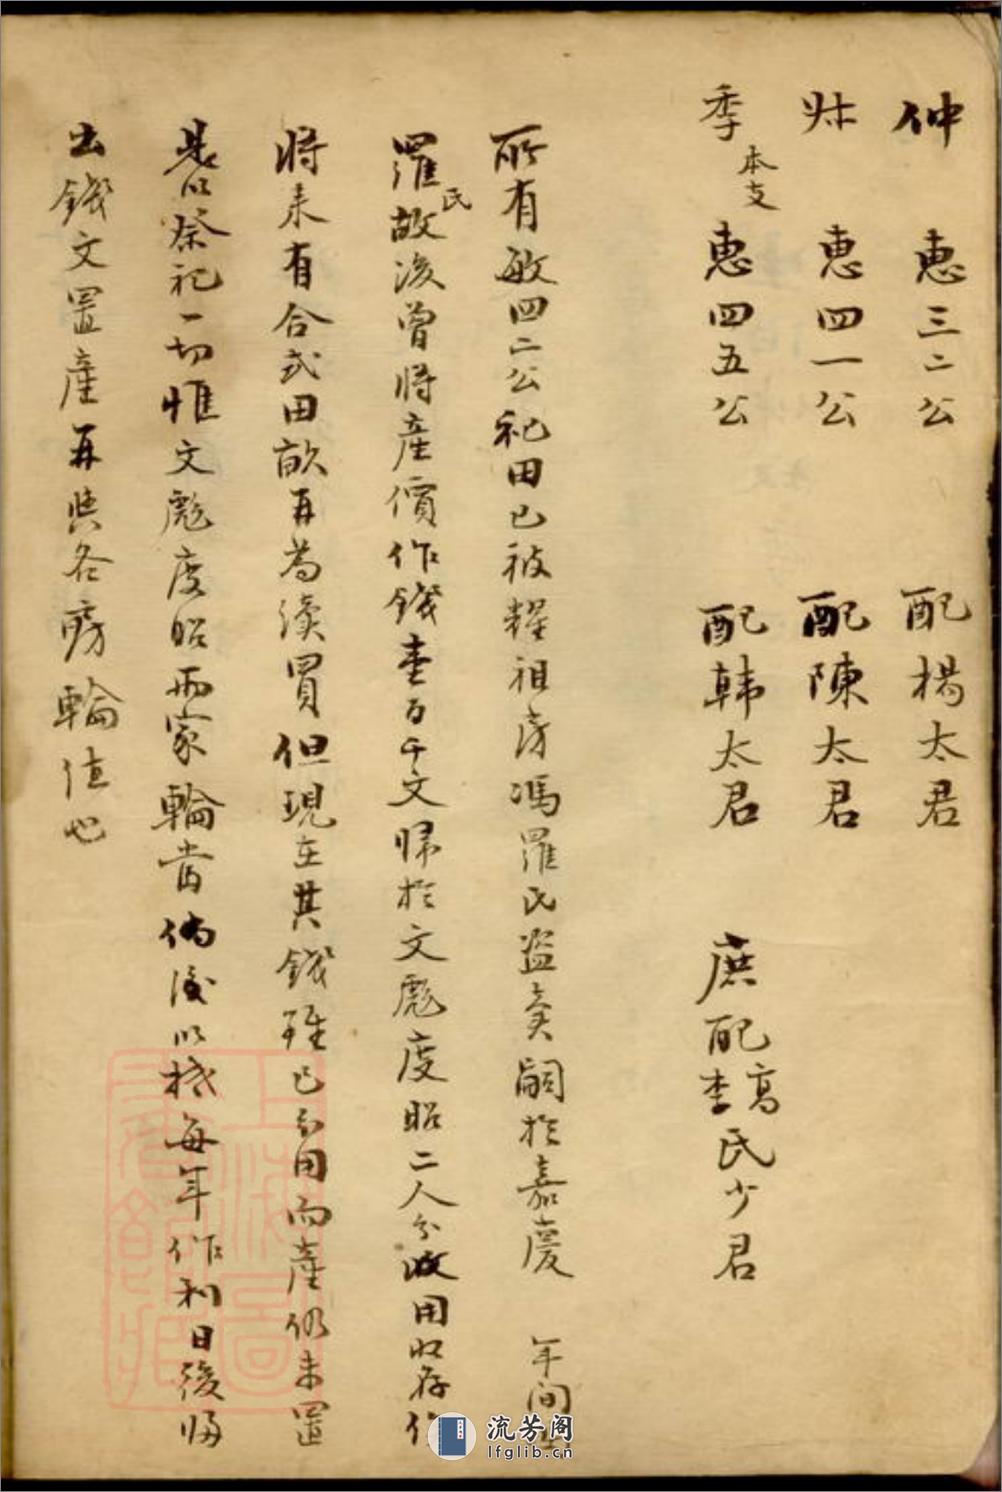 仲 惠三二公 配楊太君
惠四一公 配陳太君
季 本支 惠四五公 配韩太君 庶配高李氏少君
所有敏四二公祀田已被耀祖房馮羅氏盜賣嗣於嘉慶 年间
羅氏故後曾将產價作錢壹百千文歸於文彪度昭二人分收用收存
将来有合式田畝再為續買但現在其錢雖已分用而產仍未置
是以祭祀一切惟文彪度昭两家輪當倘後以抵每年作利日後歸
出錢文置產再與各房輪值也
上海圖書館藏
流芳阁
lfglib.cn